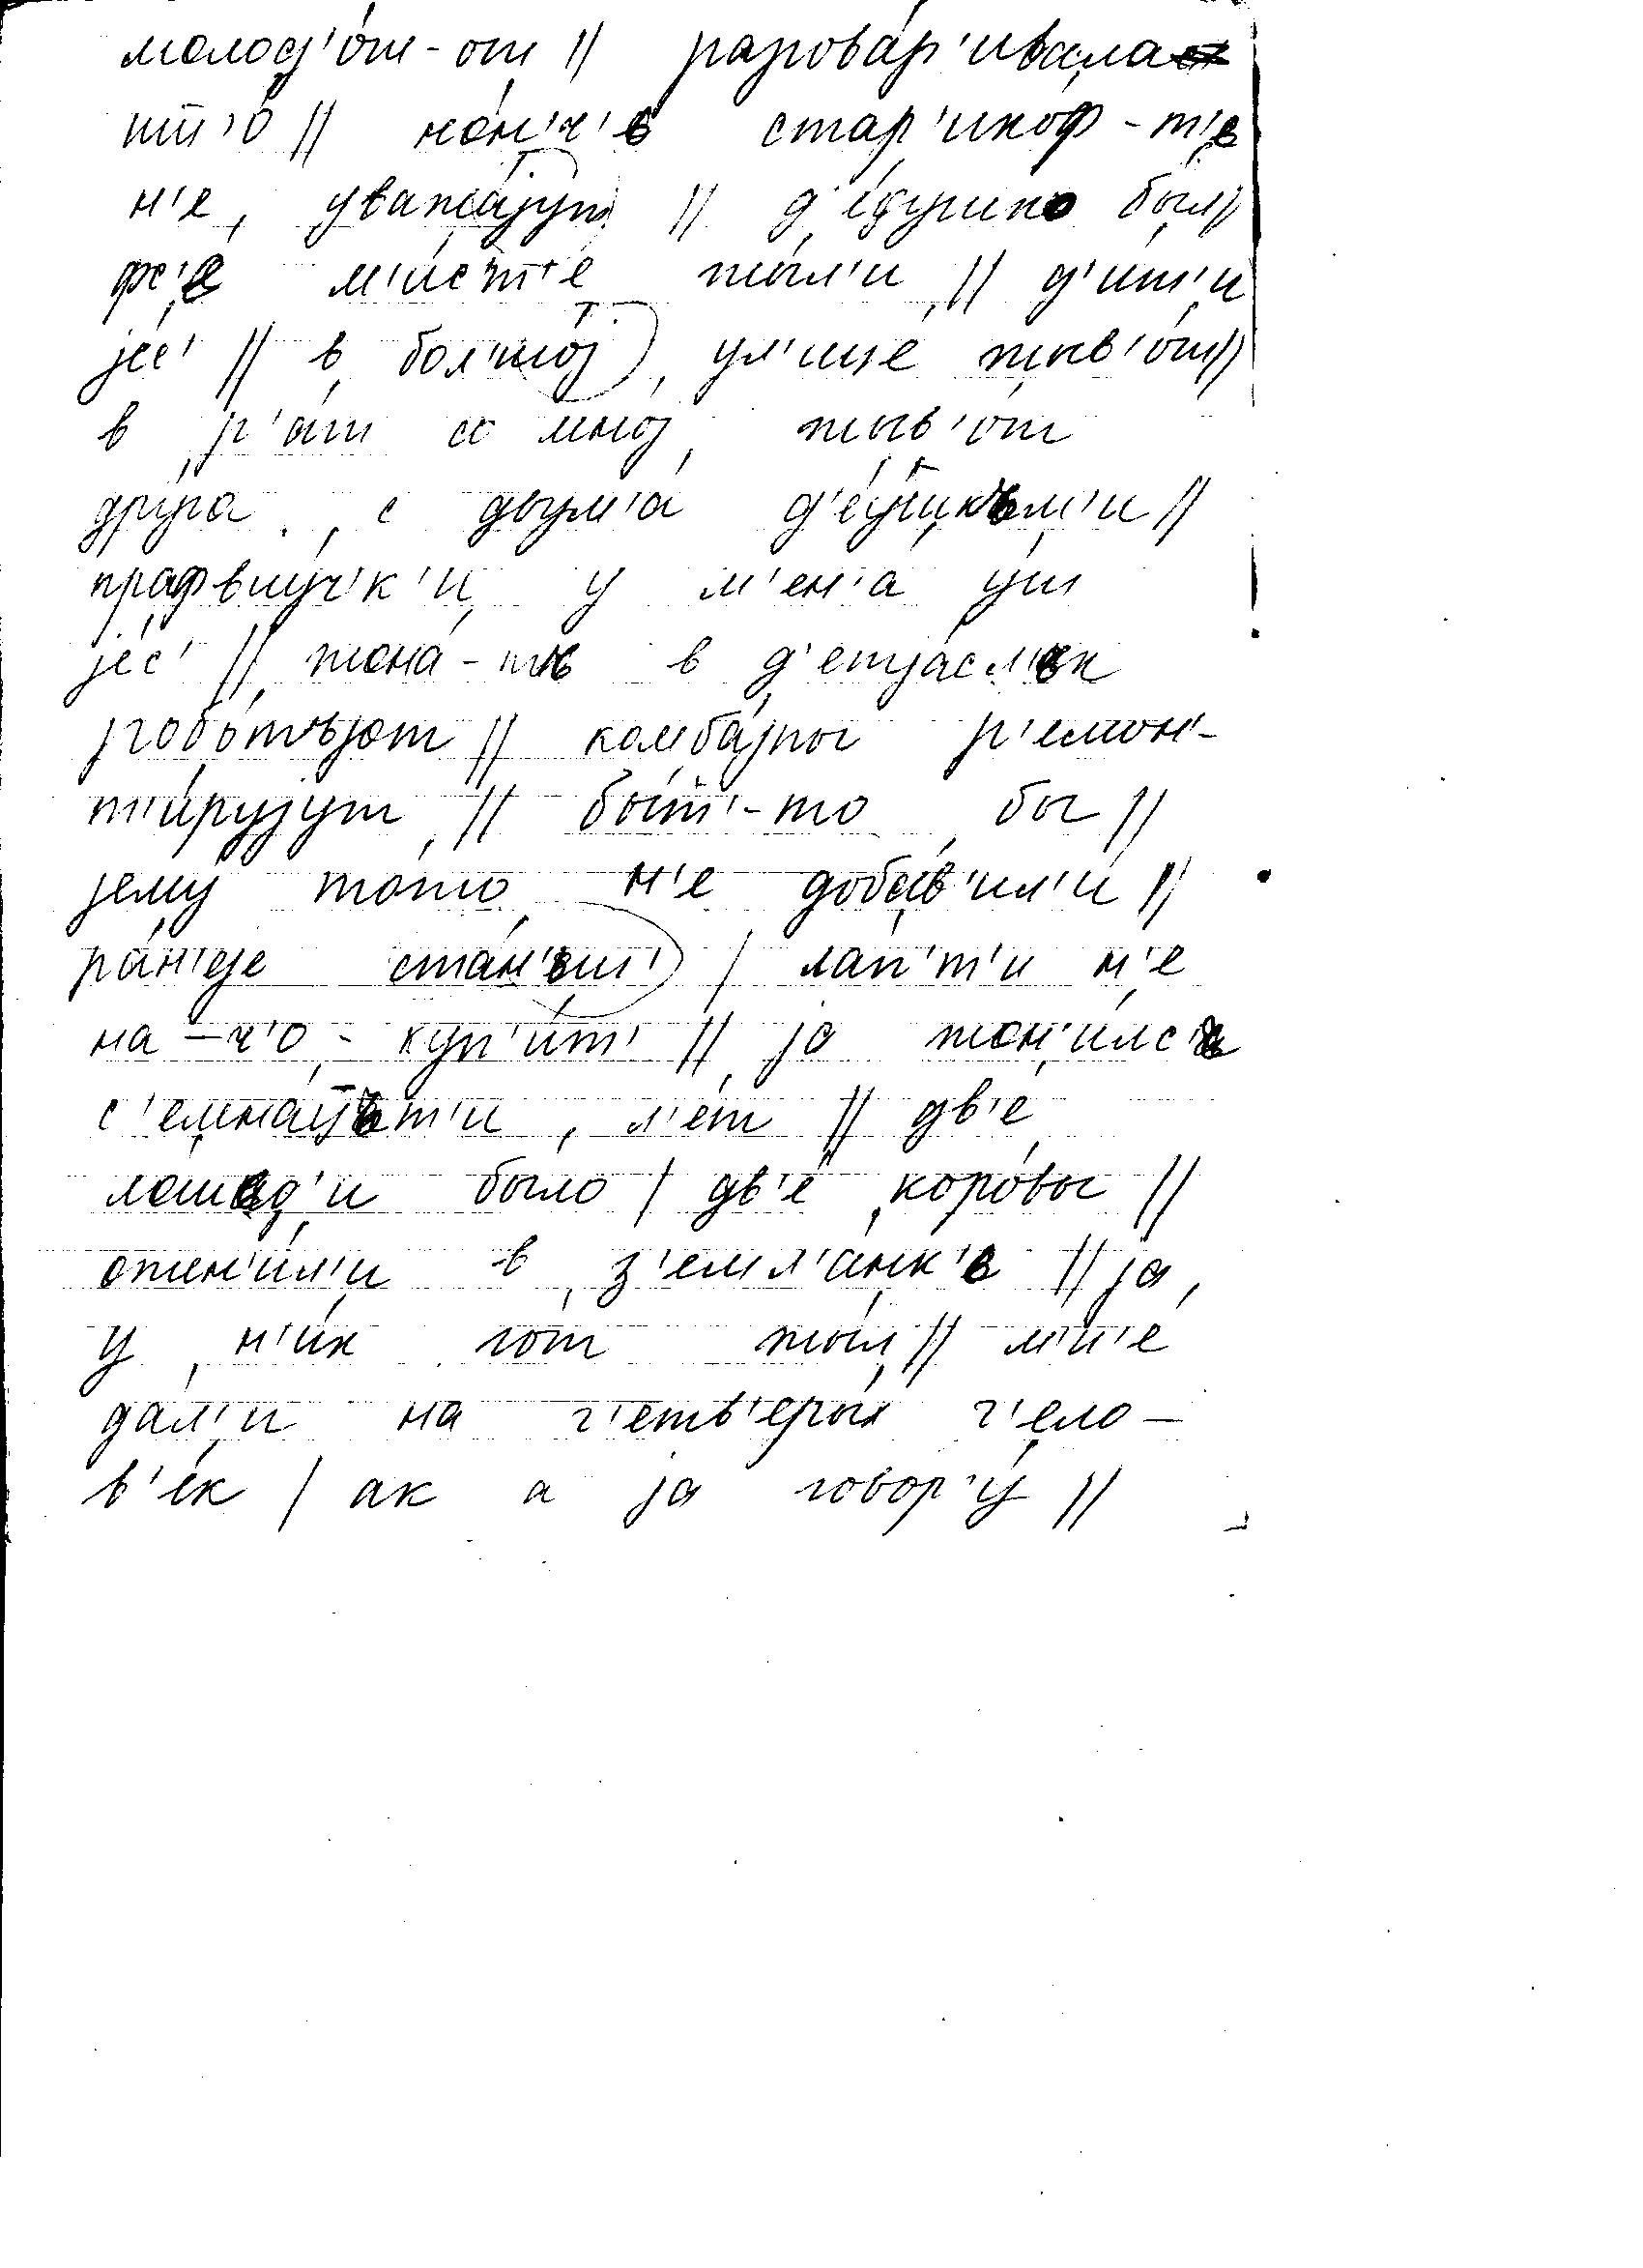 молод'о́ш-от // разгова́р'ивала
што́ // но́н'ч'е стар'ико́ф-т'е
н'е, уважа́јут // д'е́душко был //
фс'е м'и́ст'е жы́л'и // д'и́т'и
јес' // в бол'шо́ј у́л'ице жыв'о́т //
в р'а́т со мно́ј жыв'о́т
дру́га с двум'а́ д'е́вушкъм'и //
прафвну́ч'к'и у м'ен'а́ уш
је́с' // жона́-тъ в д'етја́сл'ах
робо́тъјот // комба́јны р'емон'-
т'и́рујут // бы́т'-то бы //
јему то́жо н'е доба́в'ил'и //
ра́н'ше ста́н'еш' / лап'т'и н'е
на-ч'о-куп'и́т' // ја жон'и́лс'а
с'емна́цът'и л'е́т // дв'е́
лошад'и было / дв'е́ коро́вы //
ожен'и́л'и в з'емл'а́нк'е // ја,
у н'и́х гот жы́л // м'н'е
да́л'и на ч'етв'еры́х ч'ело-
в'е́к / ак а ја говор'у́ //